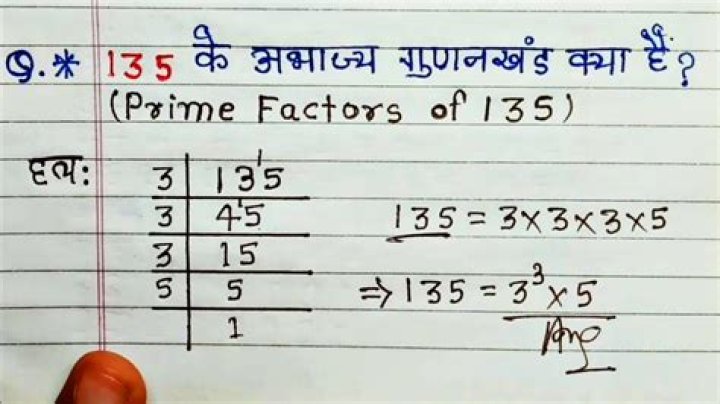 Q.* 135 के अभाज्य गुणनखंड क्या हैं?
(Prime Factors of 135)
हल:
3 | 135
3 | 45
3 | 15
5 | 5
1
135 = 3×3×3×5
⇒ 135 = 3³×5
Ans